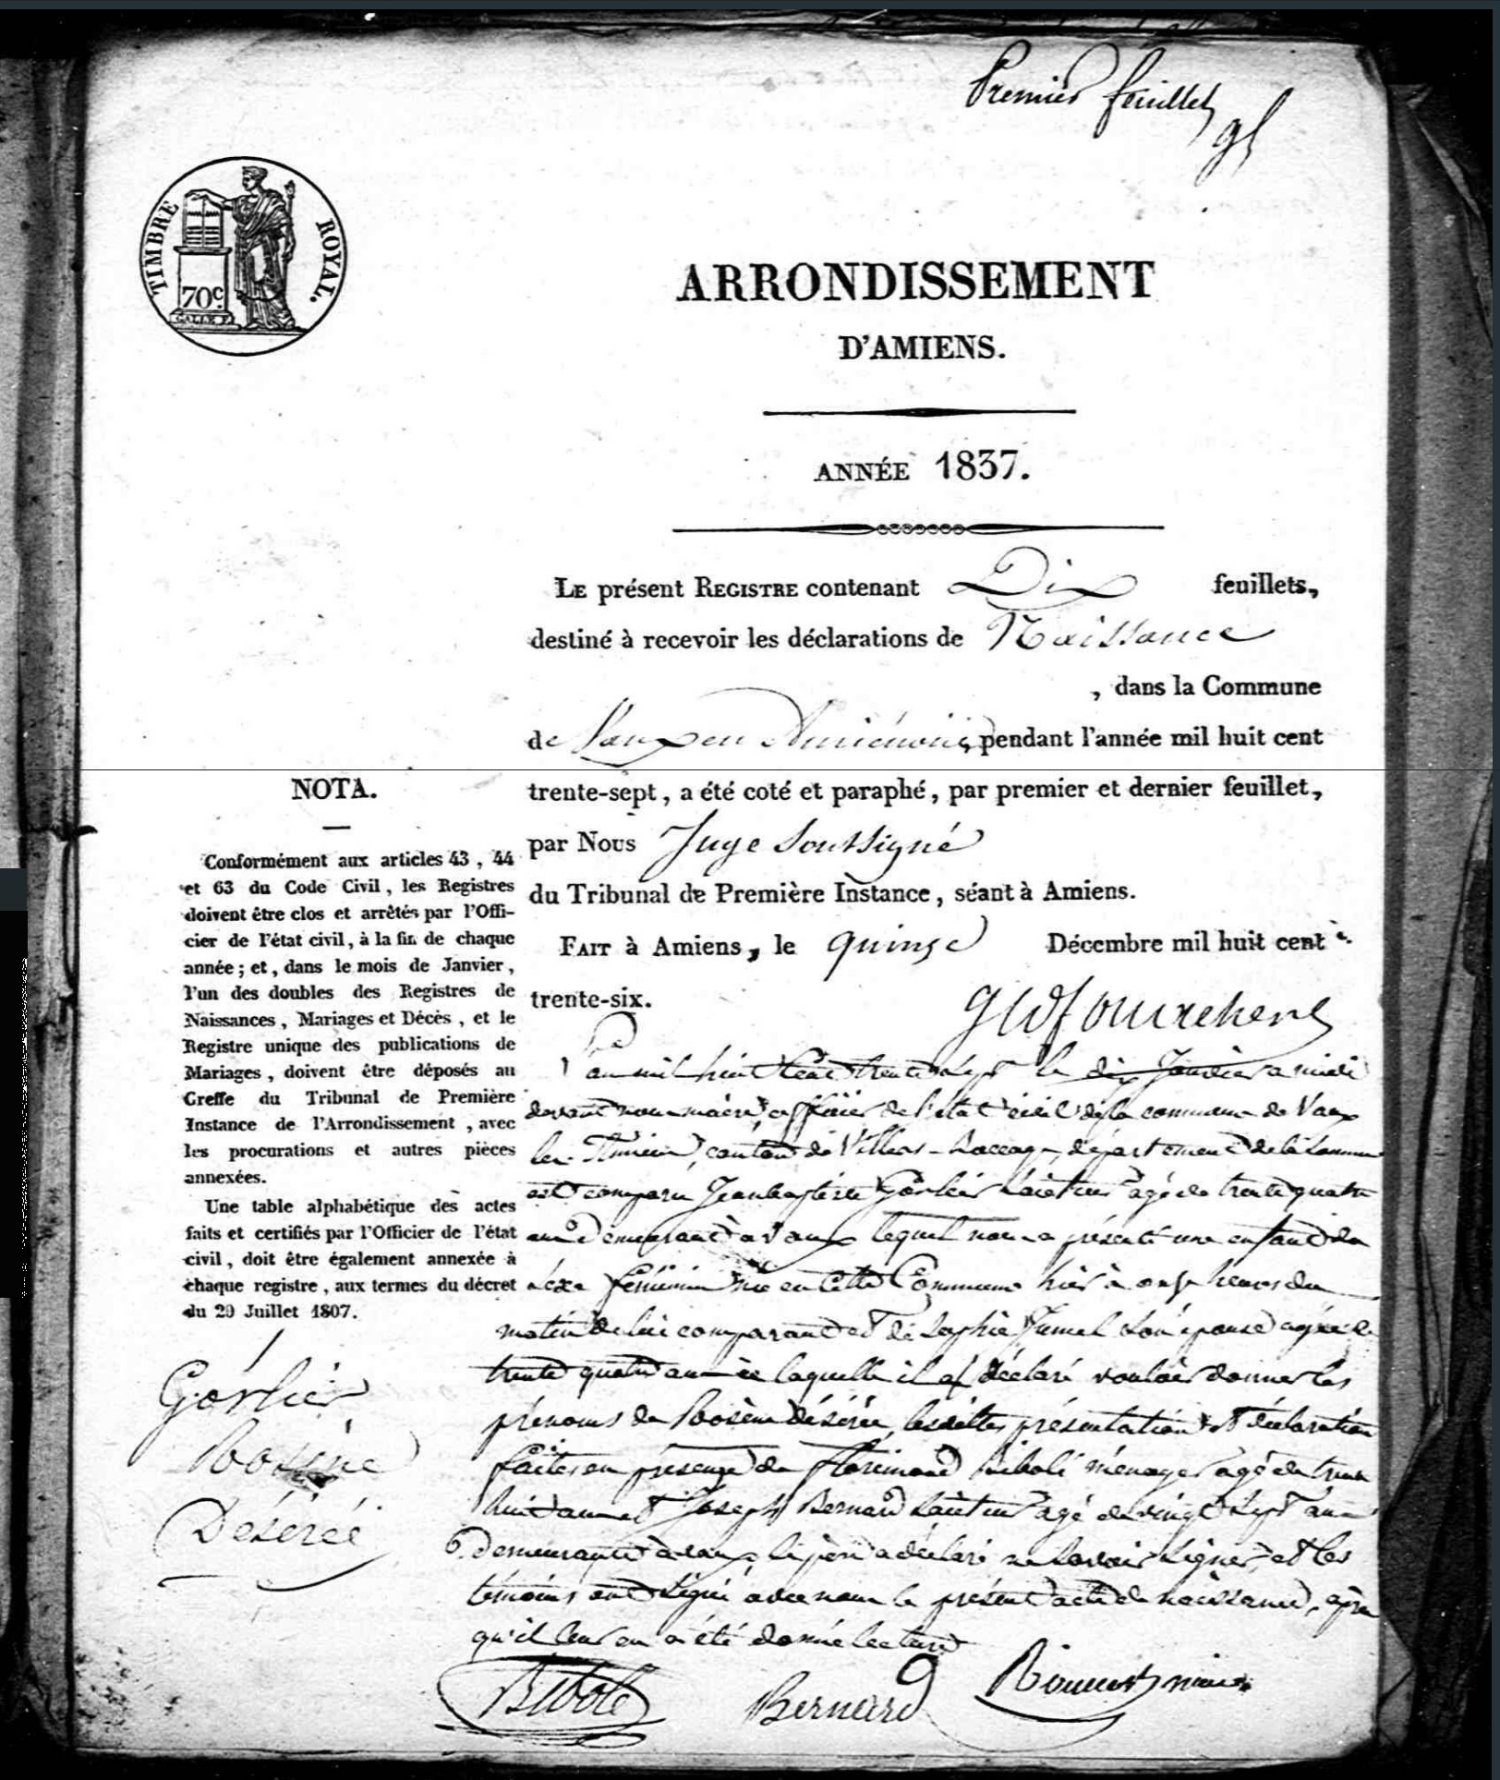 Premier feuillet
TIMBRE ROYAL.
70c.
ARRONDISSEMENT
D'AMIENS.
ANNÉE 1837.
LE présent REGISTRE contenant Dix feuillets,
destiné à recevoir les déclarations de Naissance
, dans la Commune
de Vaux en Amiénois, pendant l'année mil huit cent
trente-sept, a été coté et paraphé, par premier et dernier feuillet,
par Nous Juge Soussigné
du Tribunal de Première Instance, séant à Amiens.
FAIT à Amiens, le quinze Décembre mil huit cent
trente-six.
NOTA.
Conformément aux articles 43, 44
et 63 du Code Civil, les Registres
doivent être clos et arrêtés par l'Offi-
cier de l'état civil, à la fin de chaque
année; et, dans le mois de Janvier,
l'un des doubles des Registres de
Naissances, Mariages et Décès, et le
Registre unique des publications de
Mariages, doivent être déposés au
Greffe du Tribunal de Première
Instance de l'Arrondissement, avec
les procurations et autres pièces
annexées.
Une table alphabétique des actes
faits et certifiés par l'Officier de l'état
civil, doit être également annexée à
chaque registre, aux termes du décret
du 20 Juillet 1807.
Gorlier
Désérée
L'an mil huit cent trente sept le dix Janvier a midi
devant nous maire, officier de l'état civil de la commune de Vaux
canton de Villers-Boccage, département de la Somme
est comparu Jeanbaptiste Gorlier âgé de trente quatre
ans demeurant à Vaux lequel nous a présenté une enfant du
sexe féminin née en cette Commune hier à onze heures du
matin de lui comparant et de Sophie Jumel son épouse agée de
trente quatre ans laquelle il a déclaré vouloir donner les
prénoms de désérée, lesdittes présentation et déclaration
faites en présence de florimond Bibolé ménager agé de trente
huit ans et Joseph Bernard agé de vingt sept ans
demeurants à vaux, le père a déclaré ne savoir signer, et les
témoins ont signé avec nous le présent acte de naissance, après
qu'il leur en a été donné lecture
Bibolé Bernard